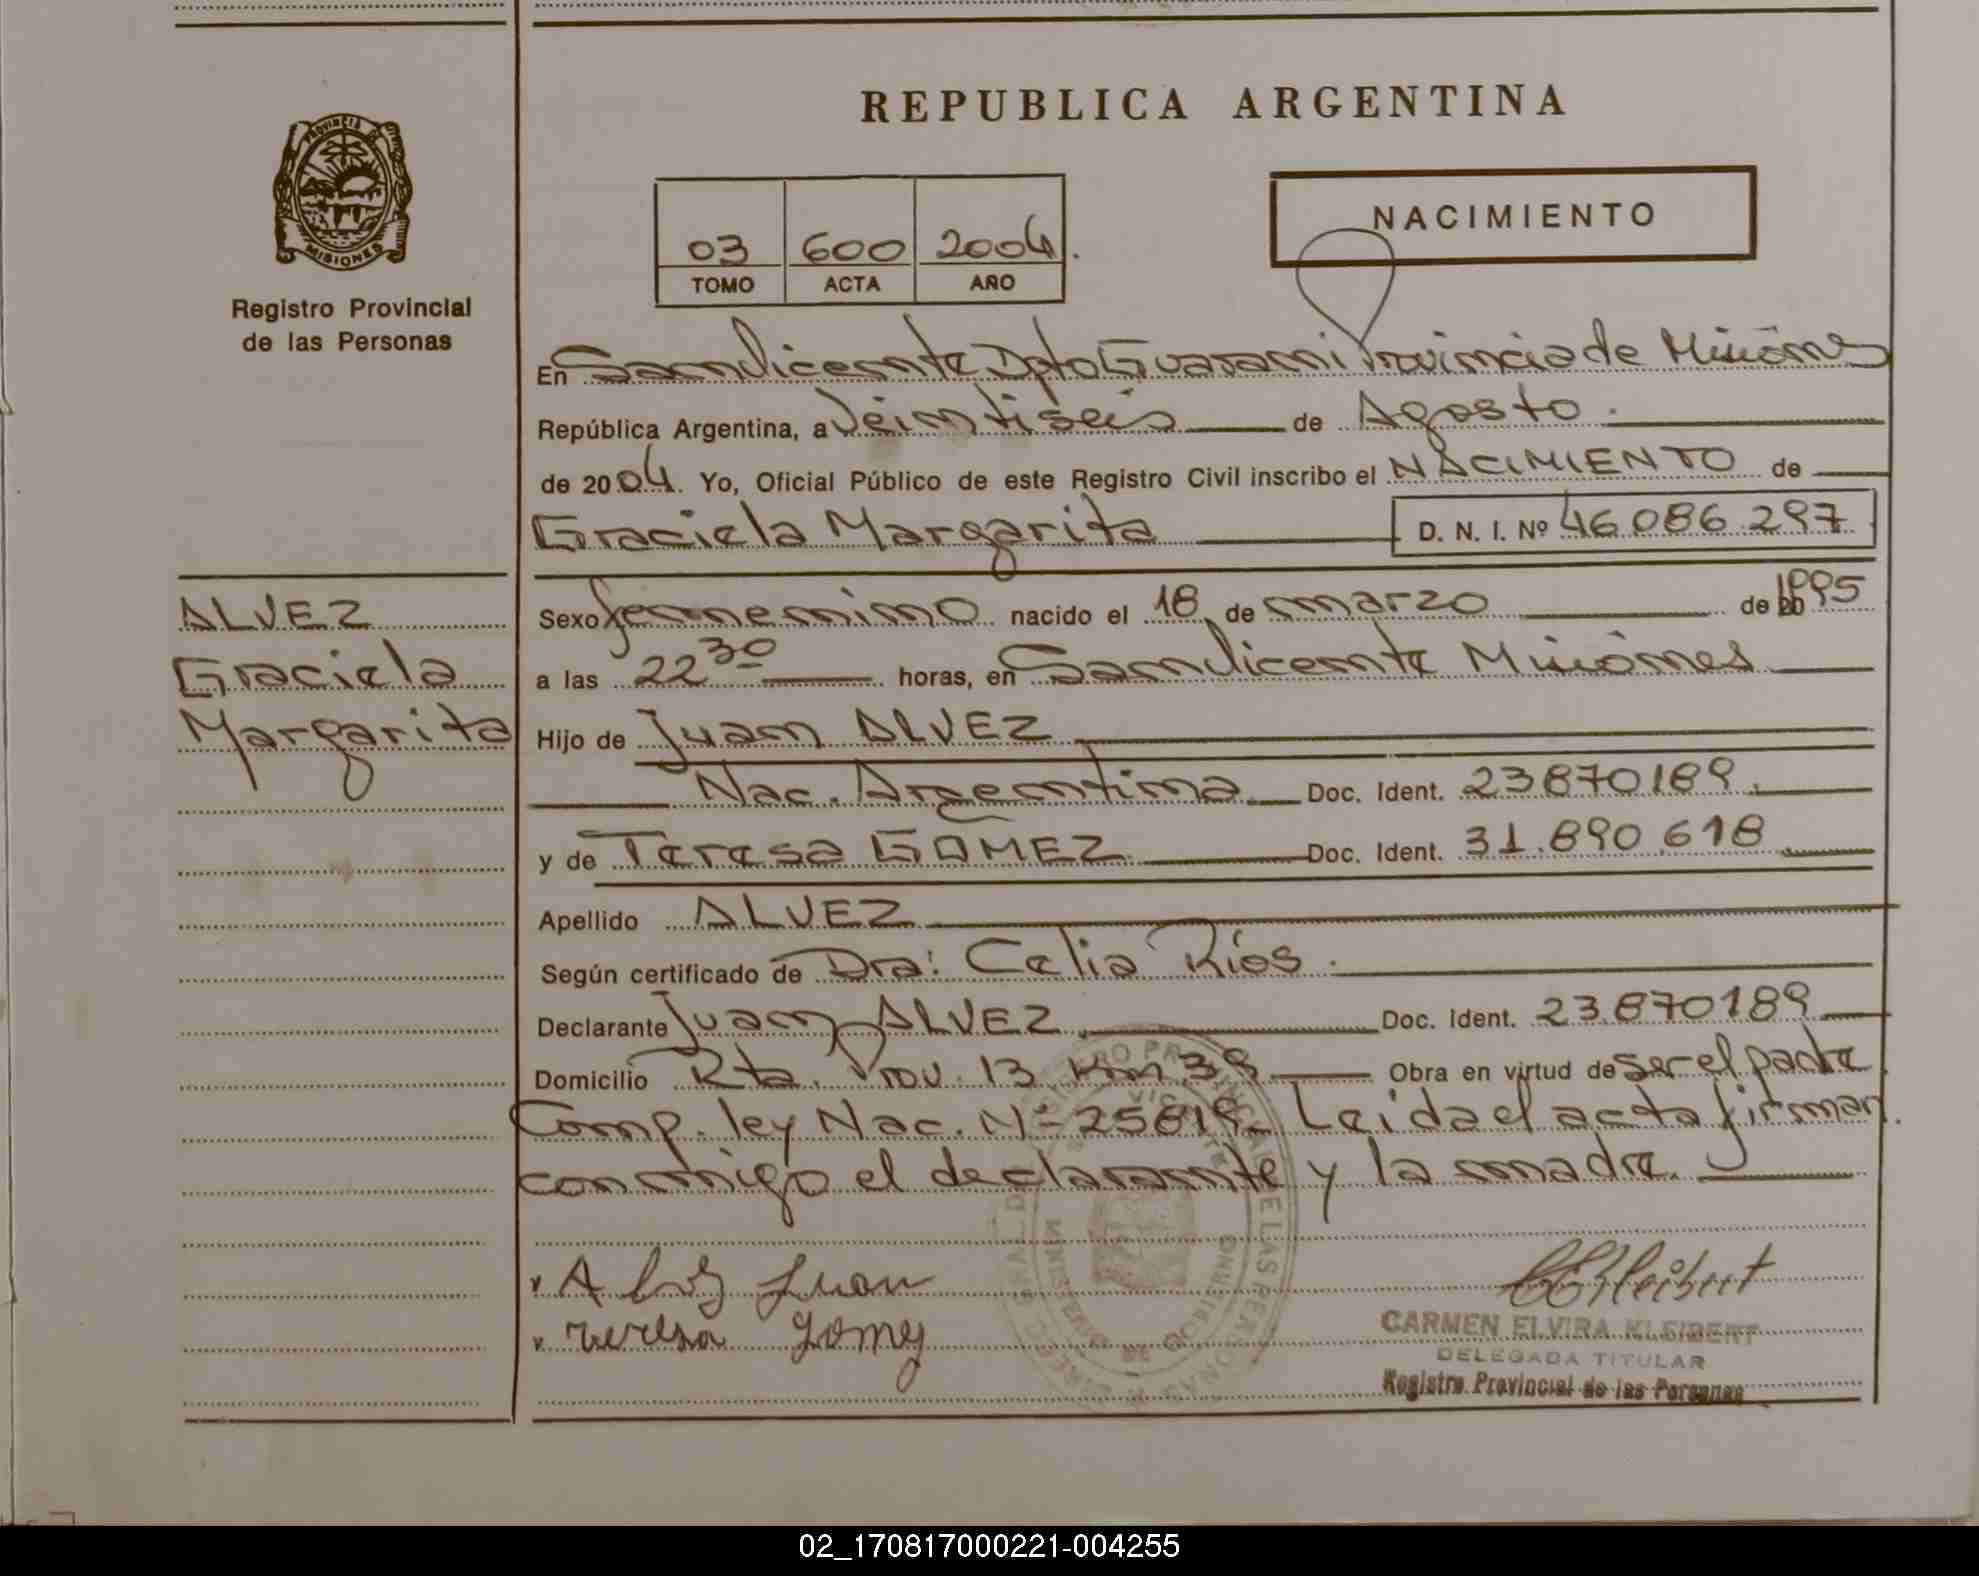 REPUBLICA ARGENTINA
PROVINCIA DE
MISIONES
Registro Provincial
de las Personas
03 600 2004
TOMO ACTA AÑO
NACIMIENTO
En San Vicente Dpto Guarani Provincia de Misiones
República Argentina, a Veintiseis de Agosto.
de 2004. Yo, Oficial Público de este Registro Civil inscribo el NACIMIENTO de
Graciela Margarita D. N. I. Nº 46.086.297
ALVEZ
Graciela
Margarita
Sexo femenino nacido el 18 de marzo de 1995
a las 22 30 horas, en San Vicente Misiones
Hijo de Juan ALVEZ
Nac. Argentina Doc. Ident. 23870189.
y de Teresa GOMEZ Doc. Ident. 31.890.618
Apellido ALVEZ
Según certificado de Dra: Celia Ríos.
Declarante Juan ALVEZ Doc. Ident. 23.870189
Domicilio Rta. Prov. 13 Km 39 Obra en virtud de ser el padre
Comp. ley Nac. Nº 25819- Leida el acta firman
conmigo el declarante y la madre.
Juan
Teresa Gomez
CARMEN ELVIRA KLEIBERT
DELEGADA TITULAR
Registro Provincial de las Personas
02_170817000221-004255